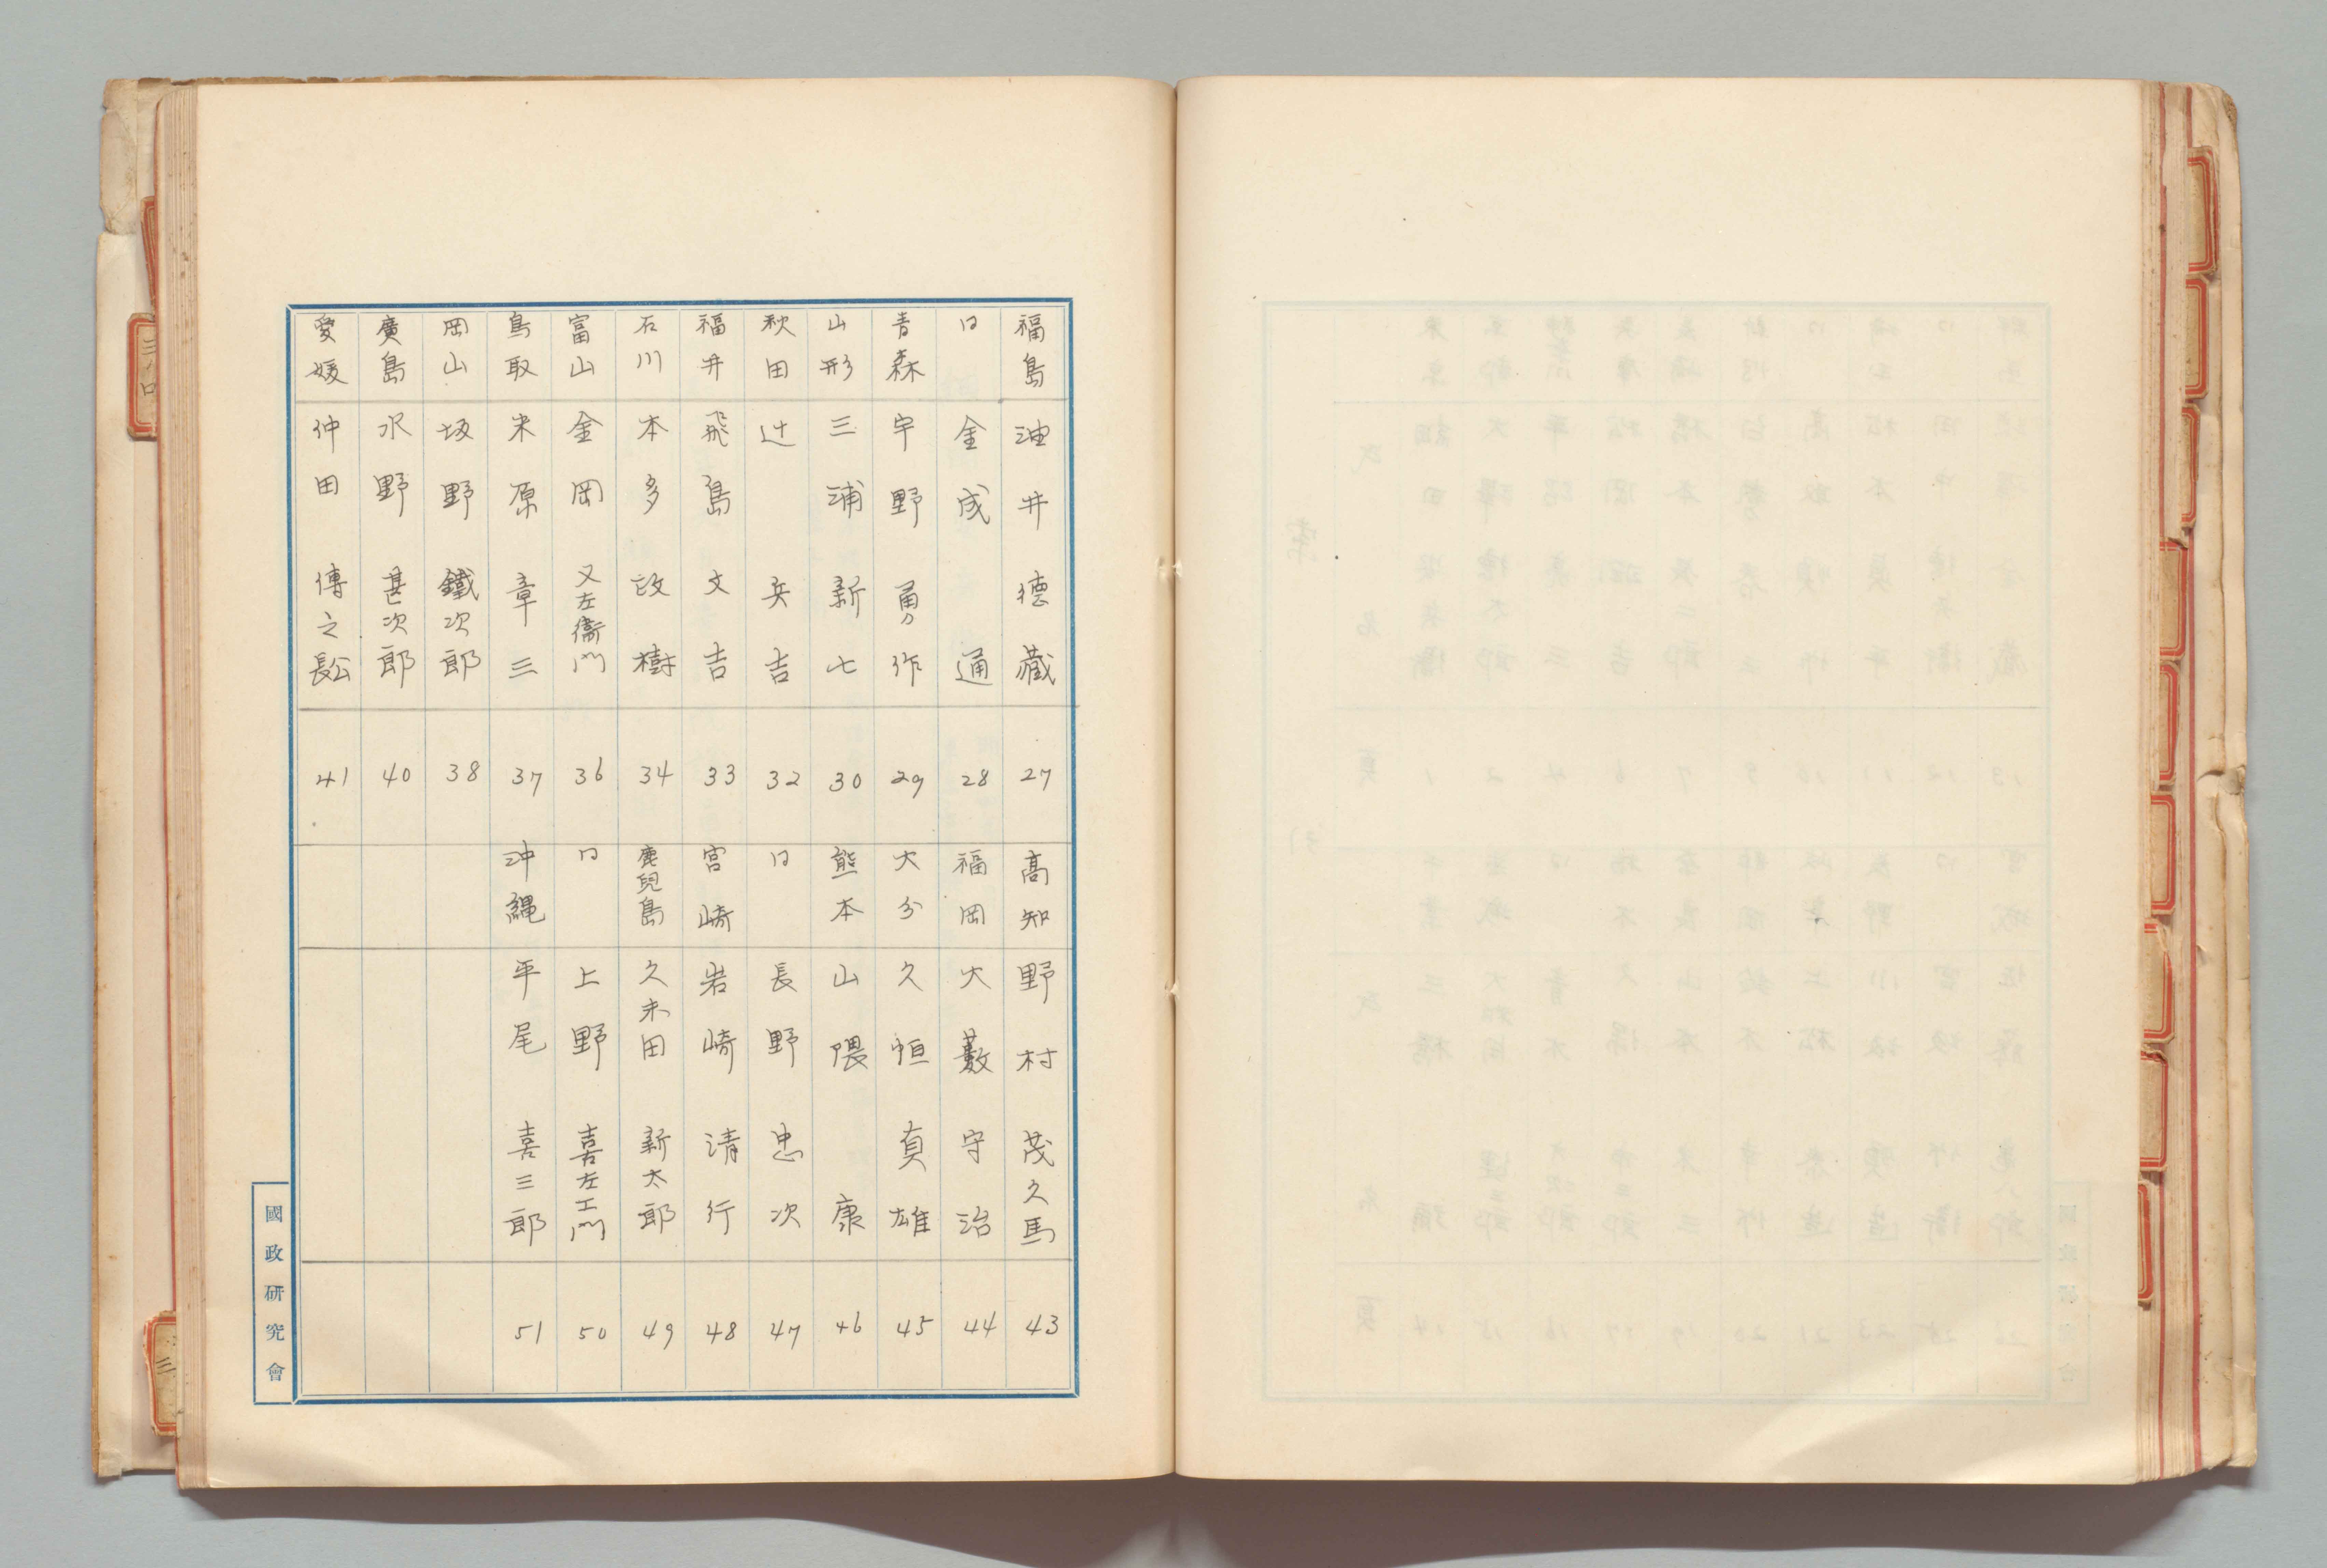 福島 油井 德藏 27
〃 金成 通 28
青森 宇野 勇作 29
山形 三浦 新七 30
秋田 辻 兵吉 32
福井 飛島 文吉 33
石川 本多 政樹 34
富山 金岡 又左衞門 36
鳥取 米原 章三 37
岡山 坂野 鐵次郎 38
廣島 水野 甚次郎 40
愛媛 仲田 傳之長公 41
高知 野村 茂久馬 43
福岡 大藪 守治 44
大分 久恒 貞雄 45
熊本 山隈 康 46
〃 長野 忠次 47
宮崎 岩崎 清行 48
鹿兒島 久米田 新太郎 49
〃 上野 喜左エ門 50
沖縄 平尾 喜三郎 51
國政研究會